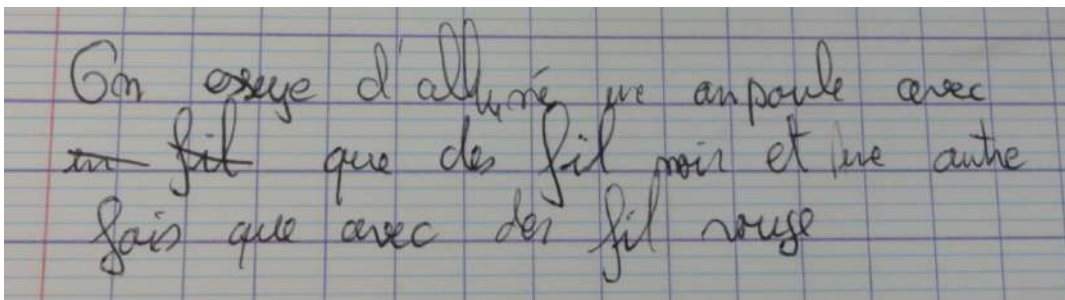 On esseye d'allumé une anpoule avec
un fil que des fil noir et une autre
fois que avec des fil rouge